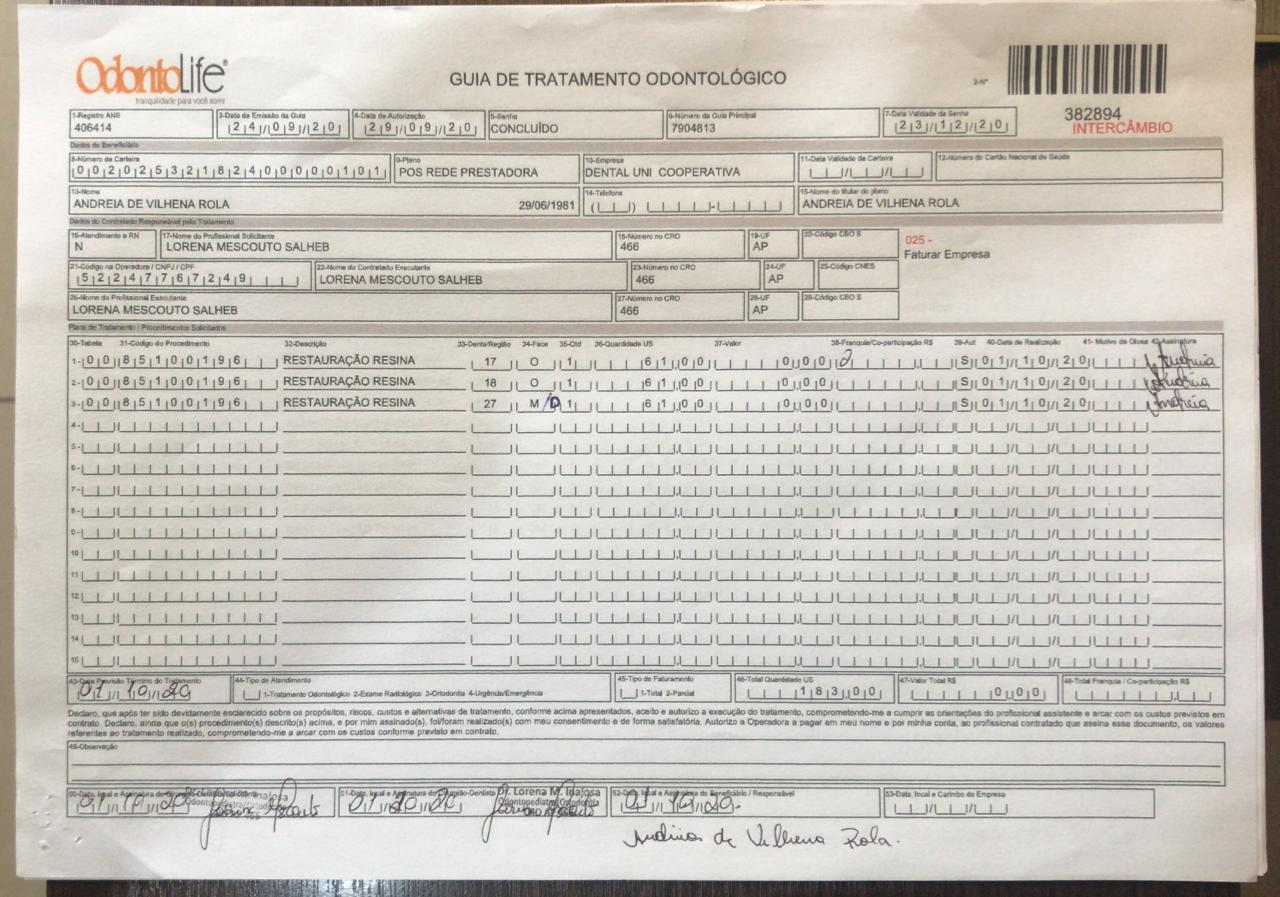 OdontoLife®
tranquilidade para você sorrir
GUIA DE TRATAMENTO ODONTOLÓGICO
2-Nº
382894
INTERCÂMBIO
1-Registro ANS 3-Data de Emissão da Guia 4-Data de Autorização 5-Senha 6-Número da Guia Principal 7-Data Validade da Senha
406414 24/09/20 29/09/20 CONCLUÍDO 7904813 23/12/20
Dados do Beneficiário
8-Número da Carteira 9-Plano 10-Empresa 11-Data Validade da Carteira 12-Número do Cartão Nacional de Saúde
00202532182400000101 POS REDE PRESTADORA DENTAL UNI COOPERATIVA
13-Nome 14-Telefone 15-Nome do titular do plano
ANDREIA DE VILHENA ROLA 29/06/1981 ANDREIA DE VILHENA ROLA
Dados do Contratado Responsável pelo Tratamento
16-Atendimento a RN 17-Nome do Profissional Solicitante 18-Número no CRO 19-UF 20-Código CBO S
N LORENA MESCOUTO SALHEB 466 AP
025 -
Faturar Empresa
21-Código na Operadora / CNPJ / CPF 22-Nome do Contratado Executante 23-Número no CRO 24-UF 25-Código CNES
52247767249 LORENA MESCOUTO SALHEB 466 AP
26-Nome do Profissional Executante 27-Número no CRO 28-UF 29-Código CBO S
LORENA MESCOUTO SALHEB 466 AP
Plano de Tratamento / Procedimentos Solicitados
30-Tabela 31-Código do Procedimento 32-Descrição 33-Dente/Região 34-Face 35-Qtd 36-Quantidade US 37-Valor 38-Franquia/Co-participação R$ 39-Aut 40-Data de Realização 41- Motivo da Glosa 42-Assinatura
1- 00 85100196 RESTAURAÇÃO RESINA 17 O 1 61,00 0,00 S 01/10/20
2- 00 85100196 RESTAURAÇÃO RESINA 18 O 1 61,00 0,00 S 01/10/20 Andreia
3- 00 85100196 RESTAURAÇÃO RESINA 27 M/D 1 61,00 0,00 S 01/10/20 Andreia
4-
5-
6-
7-
8-
9-
10
11
12
13
14
15
43-Data Previsão Término do Tratamento 44-Tipo de Atendimento 45-Tipo de Faturamento 46-Total Quantidade US 47-Valor Total R$ 48-Total Franquia / Co-participação R$
01/10/20 1-Tratamento Odontológico 2-Exame Radiológico 3-Ortodontia 4-Urgência/Emergência 1-Total 2-Parcial 183,00 0,00
Declaro, que após ter sido devidamente esclarecido sobre os propósitos, riscos, custos e alternativas de tratamento, conforme acima apresentados, aceito e autorizo a execução do tratamento, comprometendo-me a cumprir as orientações do profissional assistente e arcar com os custos previstos em
contrato. Declaro, ainda que o(s) procedimento(s) descrito(s) acima, e por mim assinado(s), foi/foram realizado(s) com meu consentimento e de forma satisfatória. Autorizo a Operadora a pagar em meu nome e por minha conta, ao profissional contratado que assina esse documento, os valores
referentes ao tratamento realizado, comprometendo-me a arcar com os custos conforme previsto em contrato.
49-Observação
50-Data, local e Assinatura do 51-Data, local e Assinatura do Cirurgião-Dentista 52-Data, local e Assinatura do Beneficiário / Responsável 53-Data, local e Carimbo da Empresa
01/10/20 01/10/20 Lorena M. Inajosa 01/10/20
Odontopediatria/Ortodontia
Andreia de Vilhena Rola.